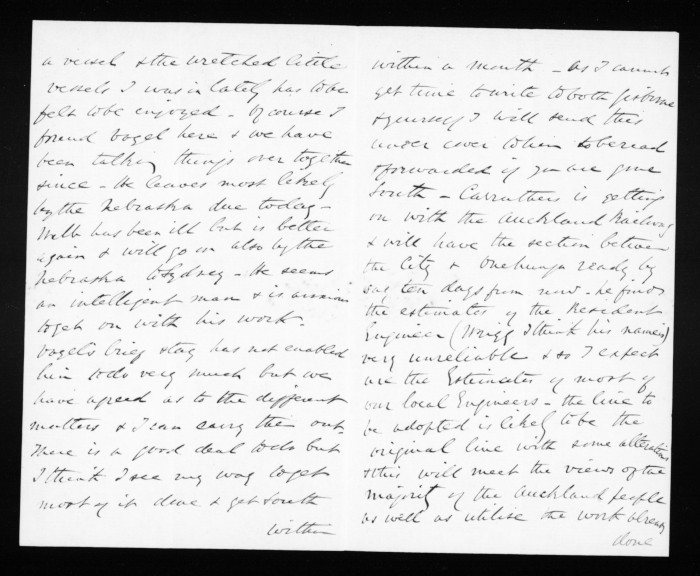 a vessel & the wretched little
vessels I was in lately has to be
felt to be enjoyed - Of course I
found Vogel here & we have
been talking things over together
since - He leaves most likely
by the Nebraska due today -
Webb has been ill but is better
again & will go on also by the
Nebraska to Sydney - He seems
an intelligent man & is anxious
to get on with his work.
Vogel's brief stay has not enabled
him to do very much but we
have agreed as to the different
matters & I can carry them out.
There is a good deal to do but
I think I see my way to get
most of it done & get South
within
within a month - As I cannot
get time to write to both Gisborne
& yourself I will send this
under cover to him to be read
& forwarded if you are gone
South - Carruthers is getting
on with the Auckland Railway
& will have the section between
the City & Onehunga ready by
say ten days from now - he finds
the estimates of the Resident
Engineer (Wrigg I think his name is)
very unreliable & so I expect
are the Estimates of most of
our local Engineers - the line to
be adopted is likely to be the
original line with some alterations
& this will meet the views of the
majority of the Auckland people
as well as utilise the work already
done